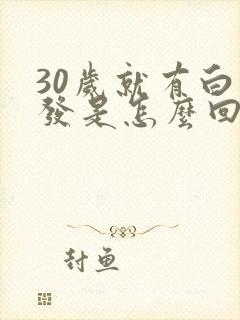 30歲就有白
發是怎麼回
封魚